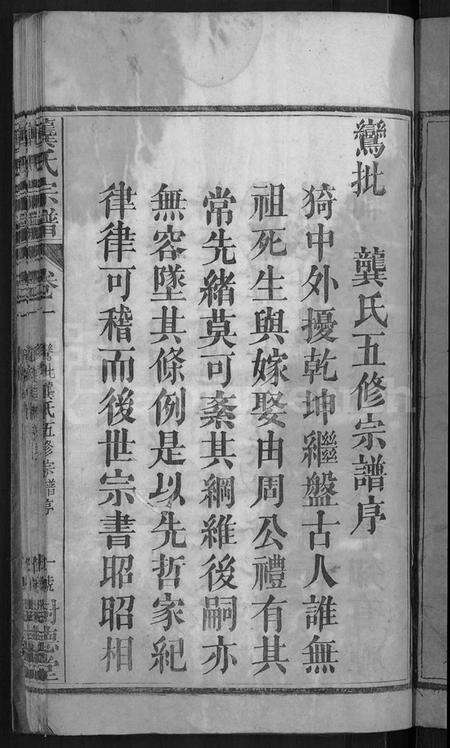 鸞批 龔氏五修宗譜序
猗中外擾乾坤繼盤古人誰無
祖死生與嫁娶由周公禮有其
常先緒莫可紊其綱維後嗣亦
無容墜其條例是以先哲家紀
律律可稽而後世宗書昭昭相
龔氏宗譜 卷一 鸞批龔氏五修宗譜序